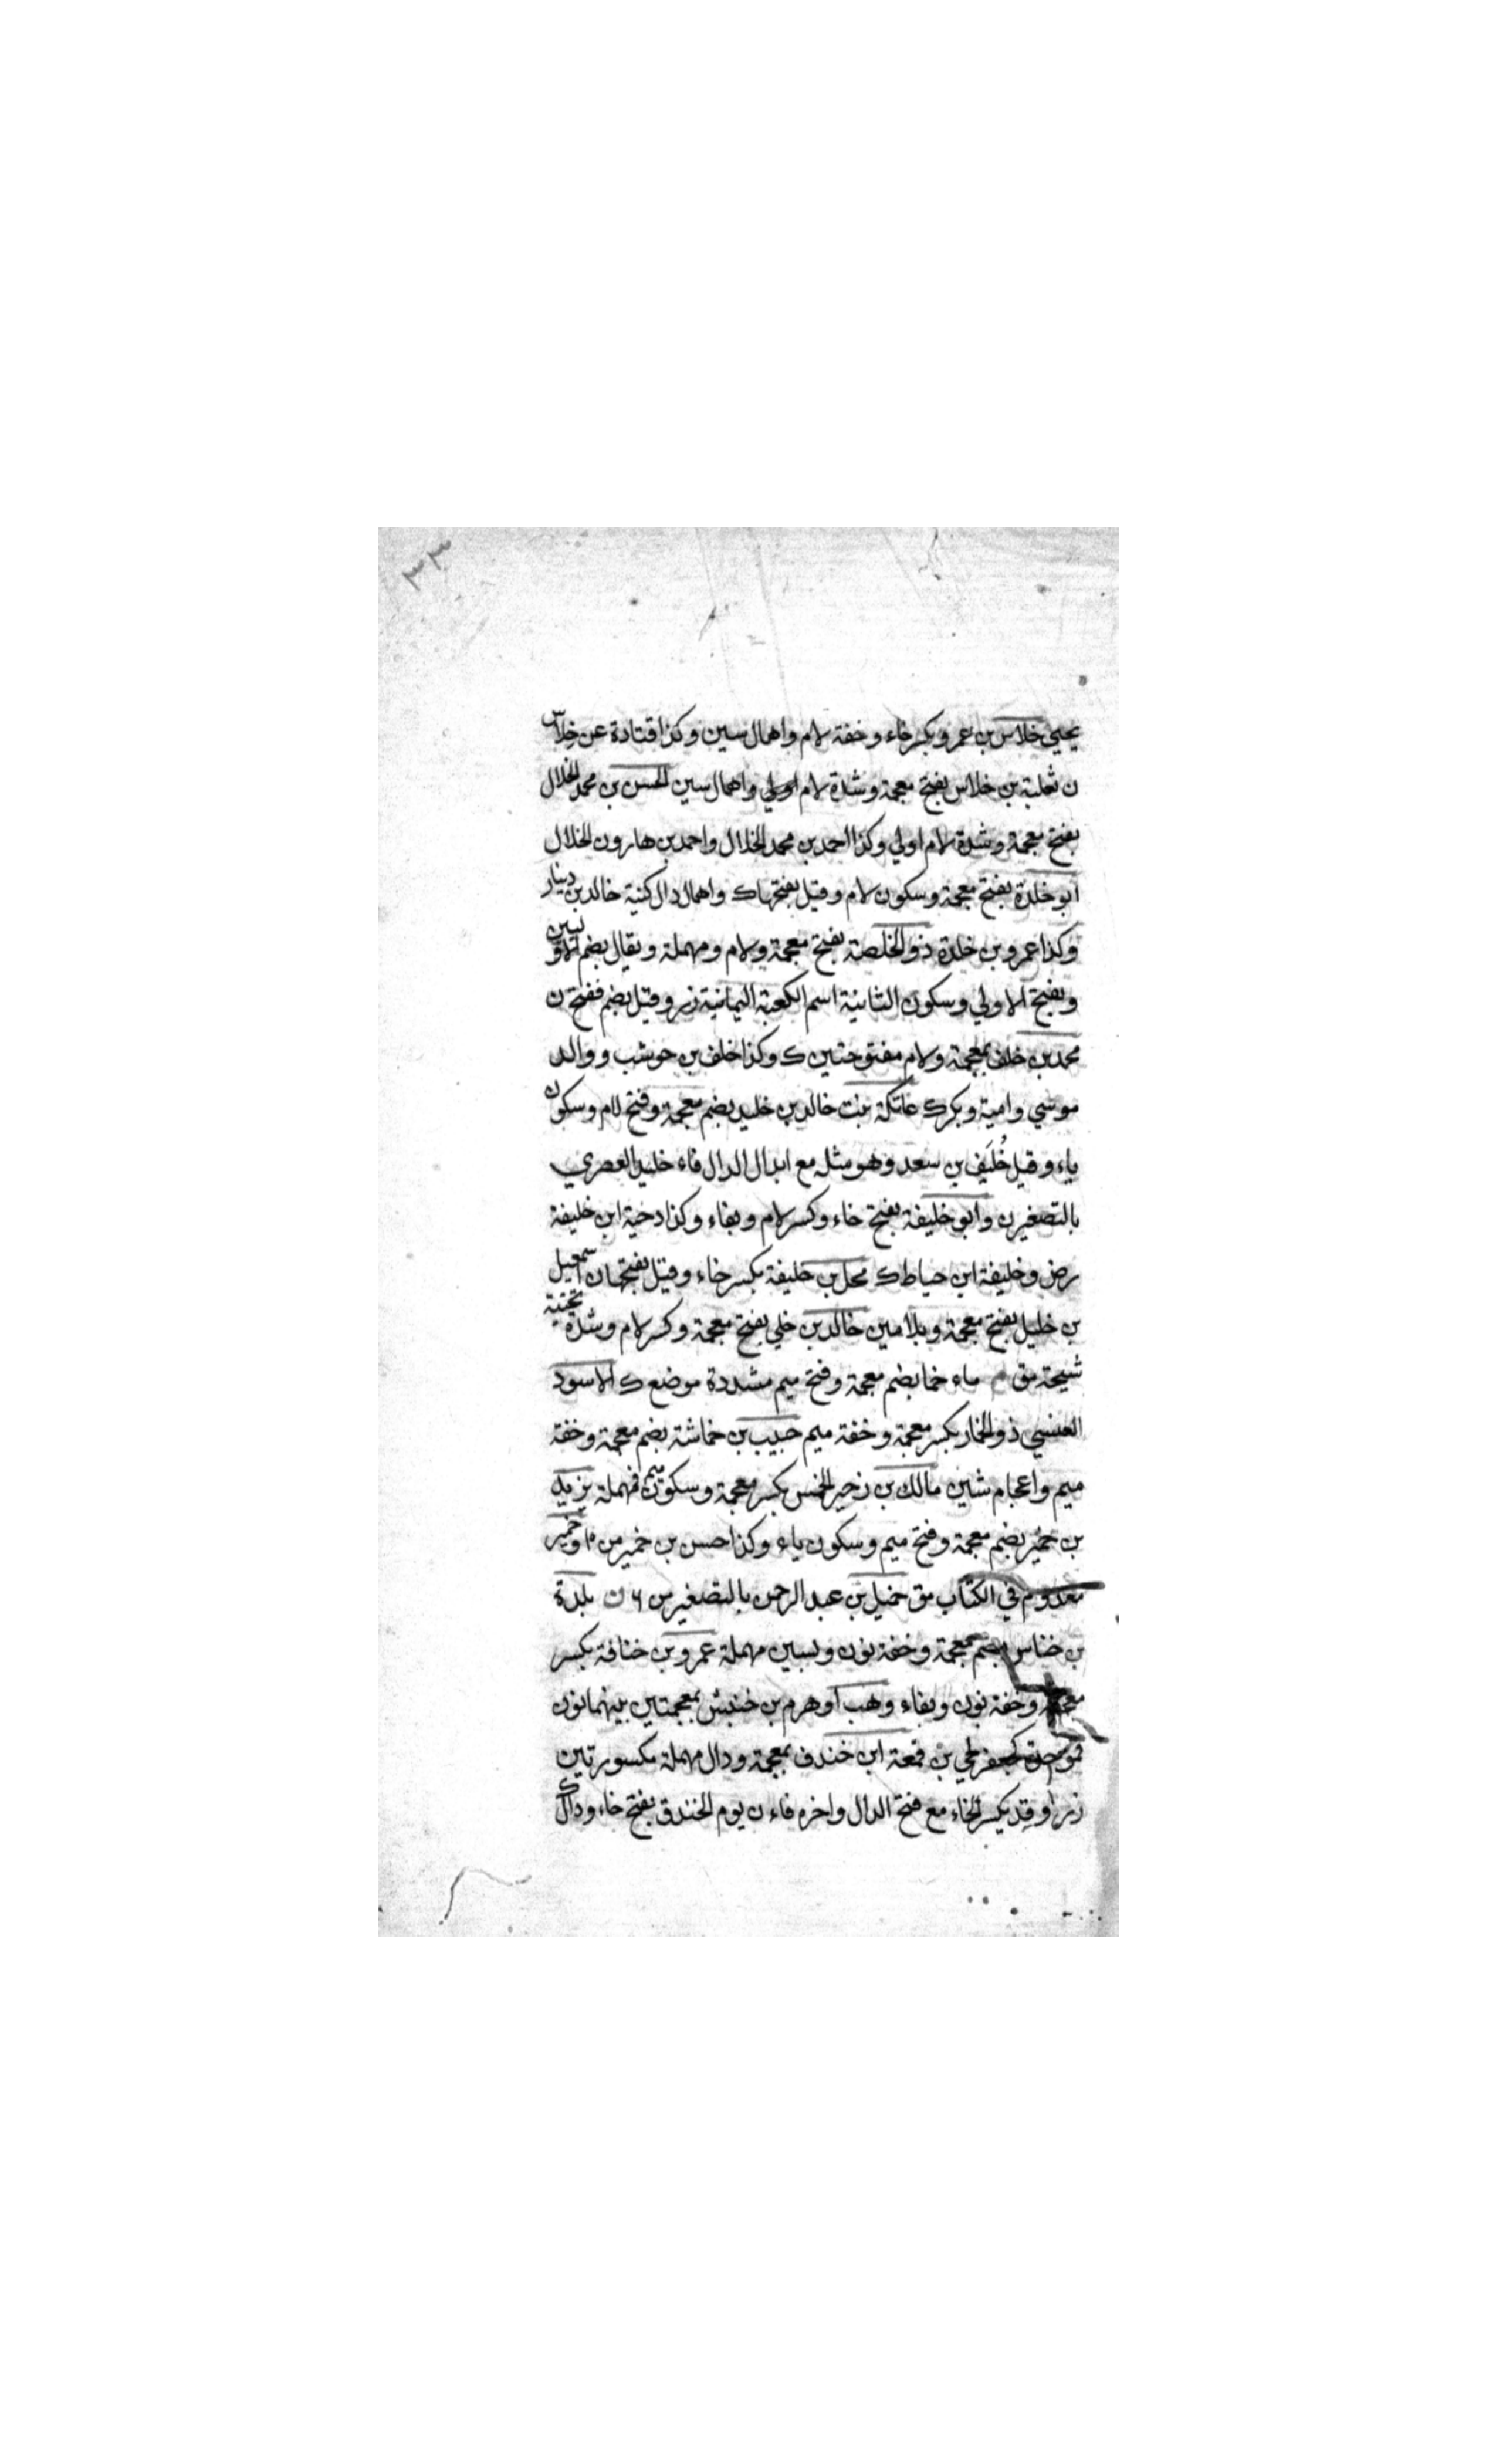 ٣٣
يحيى خلاس بن عمرو بكسر خاء وخفة لام واهمال سين وكذا قتادة عن خِلاس
ن ثعلبة بن خلاس بفتح معجمة وشدة لام اولي واهمال سين الحسن بن محمد الخلال
بفتح معجمة وشدة لام اولي وكذا احمد بن محمد الخلال واحمد بن هارون الخلال
ابو خلدة بفتح معجمة وسكون لام وقيل بفتحها ك واهمال دال كنية خالد بن دينار
وكذا عمرو بن خلدة ذو الخلصة بفتح معجمة ولام ومهملة ويقال بضم الاوليين
وبفتح الاولي وسكون الثانية اسم الكعبة اليمانية زر وقيل بضم ففتح ن
محمد بن خلف بمعجمة ولام مفتوحتين ك وكذا خلف بن حوشب ووالد
موسي وامية وبكر ك عاتكة بنت خالد بن خليد بضم معجمة وفتح لام وسكون
ياء وقيل خُلَيف بن سعد وهو مثله مع ابدال الدال فاء خليد العصري
بالتصغير ن وابو خليفة بفتح خاء وكسر لام وبفاء وكذا دحية ابن خليفة
رض وخليفة ابن خياط ك محل بن خليفة بكسر خاء وقيل بفتحها ن اسمعيل
بن خليل بفتح معجمة وبلامين خالد بن خلي بفتح معجمة وكسر لام وشدة تحتية
شيحة مق م ماء خما بضم معجمة وفتح ميم مشددة موضع ك الاسود
العنسي ذو الخمار بكسر معجمة وخفة ميم حبيب بن خماشة بضم معجمة وخفة
ميم واعجام شين مالك بن زخير الخمس بكسر معجمة وسكون ميم فمهملة يزيد
بن خمير بضم معجمة وفتح ميم وسكون ياء وكذا حسن بن خمير من اوخمير
معدوم في الكتاب مق خميل بن عبد الرحمن بالتصغير من ن بلدة
بن خناس بضم معجمة وخفة نون وبسين مهملة عمرو بن خنافة بكسر
معجمة وخفة نون وبفاء وهب او هرم بن خنبش بمعجمتين بينهما نون
فموحدة كجعفر لحي بن قمعة ابن خندف بمعجمة ودال مهملة مكسورتين
زر وقد بكسر الخاء مع فتح الدال واخره فاء ن يوم الخندق بفتح خاء ودال ك